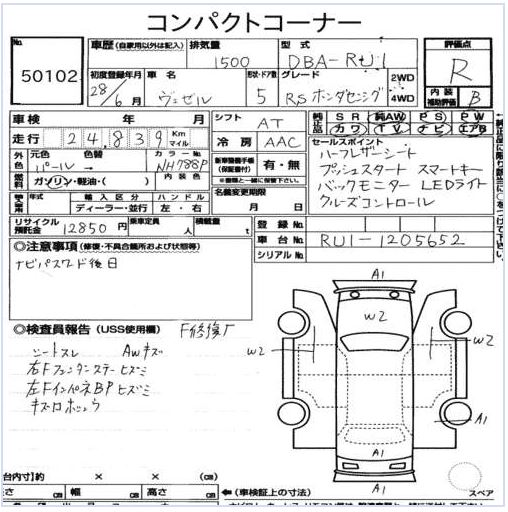 コンパクトコーナー
No.
50102
車歴(自家用以外は記入)
排気量
1500
型式
DBA-RU1
評価点
R
初度登録年月
28/6月
車名
ヴェゼル
形状・ドア数
5
グレード
RSホンダセンシング
2WD
4WD
内装
補助評価
B
車検 年 月
シフト
AT
純正品
SR 純AW PS PW
カワ TV ナビ エアB
走行
24,839
Km
マイル
冷房
AAC
セールスポイント
ハーフレザーシート
プッシュスタート スマートキー
バックモニター LEDライト
クルーズコントロール
外色
元色
パール
色替
→
カラーNo.
NH788P
新車整備手帳
(保証書付)
有・無
燃料
ガソリン・軽油・( )
内装色
名義変更期限
月 日
年式
輸入区分
ハンドル
ディーラー・並行
左・右
リサイクル
預託金
12850円
乗車定員
人
積載量
登録No.
車台No.
RU1-1205652
シリアルNo.
◎注意事項(修復・不具合箇所および状態等)
ナビパスワード後日
◎検査員報告(USS使用欄)
F修復歴
シートスレ AWキズ
右Fフェンダーステーヒズミ
左FインパネBPヒズミ
A1
W2
W2
W2
A1
A1
A1
スペア
台内寸)約 × × (cm)
さ 幅 高さ
←(車検証上の寸法)